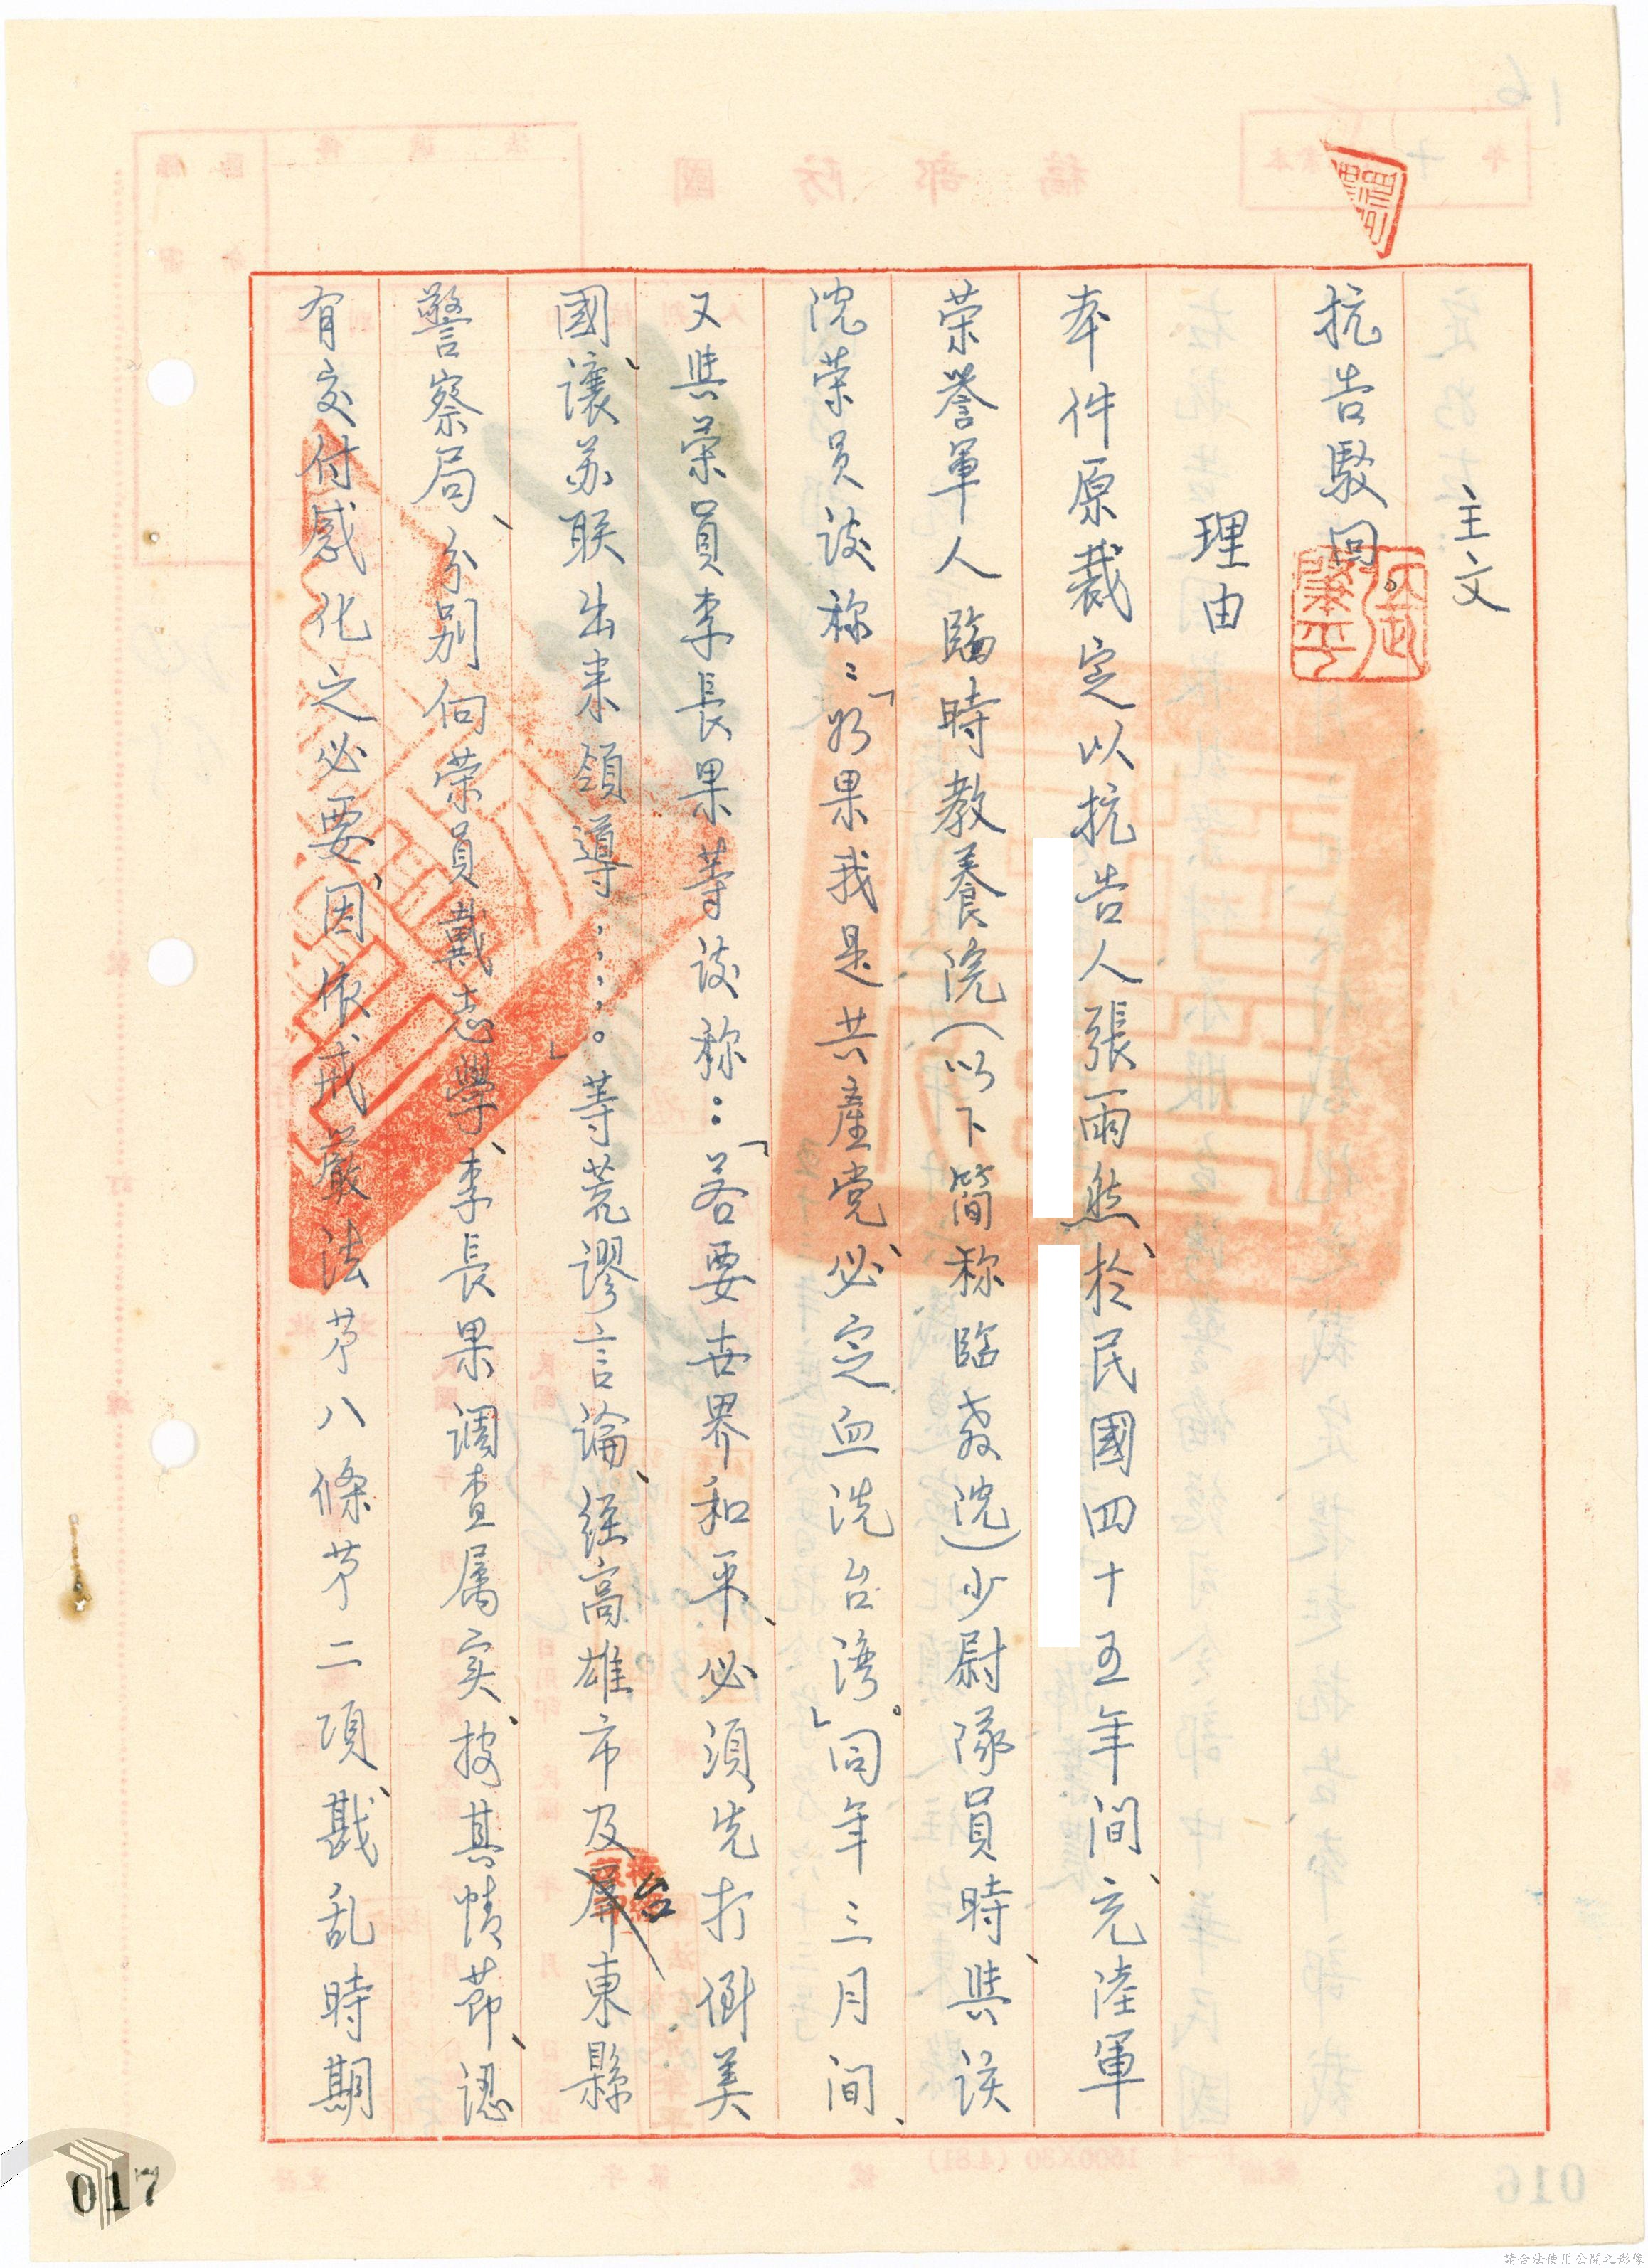 主文
抗告駁回。
理由
本件原裁定以抗告人張雨然、於民國四十五年間、充陸軍
荣譽軍人臨時教養院(以下簡称臨教院)少尉隊員時、與該
院荣員談称:「如果我是共產党、必定血洗台湾。」同年三月間、
又與荣員李長果等談称:「若要世界和平、必須先打倒美
國、讓苏联出来領導……。」等荒謬言論、經高雄市及台東縣
警察局、分别向荣員戴志學、李長果调查属实、按其情節、認
有交付感化之必要、因依戒嚴法苐八條苐二項、戡乱時期
017
請合法使用公開之影像